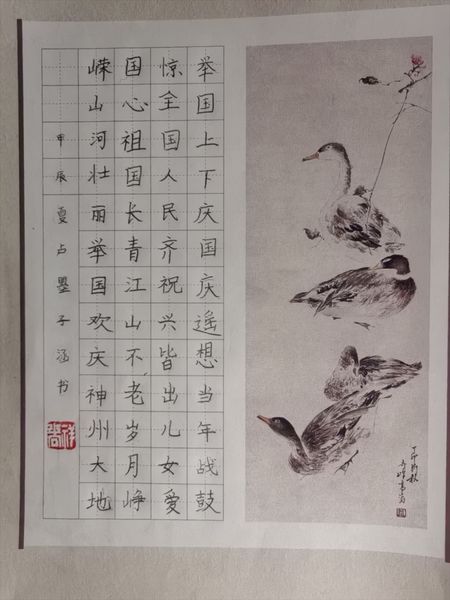 举国上下庆国庆遥想当年战鼓
惊全国人民齐祝兴皆出儿女爱
国心祖国长青江山不老岁月峥
嵘山河壮丽举国欢庆神州大地
甲辰夏占墨子涵书